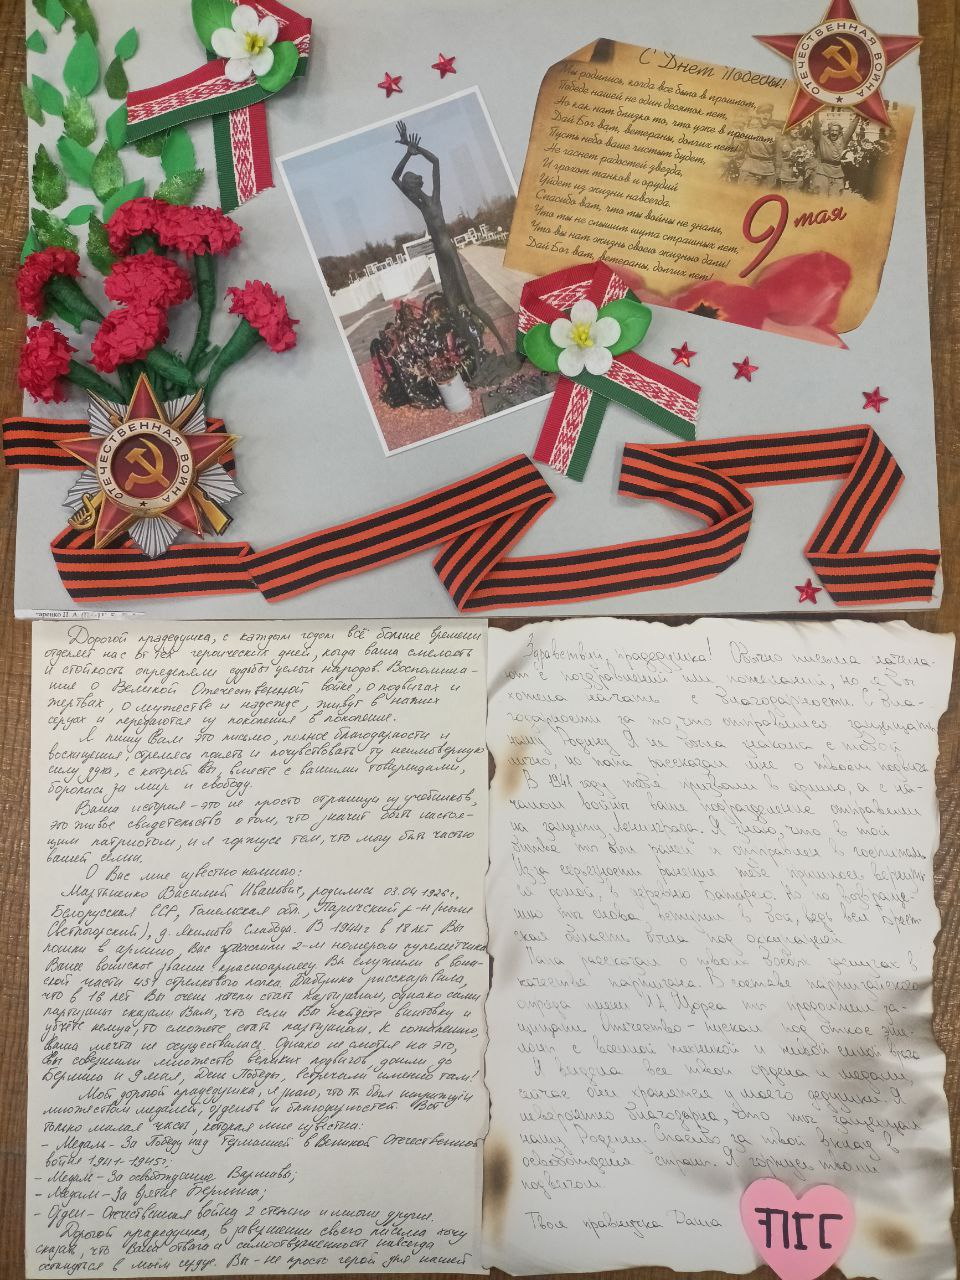 С Днем Победы!
Мы родились, когда все было в прошлом,
Победе нашей не один десяток лет,
Но как нам близко то, что уже в прошлом.
Дай Бог вам, ветераны, долгих лет!
Пусть небо ваше чистым будет,
Не гаснет радостей звезда,
И грохот танков и орудий
Уйдет из жизни навсегда.
Спасибо вам, что мы войны не знали,
Что мы не слышим шума страшных лет,
Что вы нам жизнь своею жизнью дали!
Дай Бог вам, ветераны, долгих лет!
9 мая
ОТЕЧЕСТВЕННАЯ ВОЙНА
ОТЕЧЕСТВЕННАЯ ВОЙНА
Дорогой прадедушка, с каждым годом всё больше времени
отделяет нас от тех героических дней, когда ваша смелость
и стойкость определяли судьбы целых народов. Воспомина-
ние о Великой Отечественной войне, о подвигах и
жертвах, о мужестве и надежде, живут в наших
сердцах и передаются из поколения в поколение.
Я пишу Вам это письмо, полное благодарности и
восхищения, стремясь понять и почувствовать ту неимоверную
силу духа, с которой Вы, вместе с вашими товарищами,
боролись за мир и свободу.
Ваша история - это не просто страница из учебников,
это живое свидетельство о том, что значит быть настоя-
щим патриотом, и я горжусь тем, что могу быть частью
вашей семьи.
О Вас мне известно немного:
Мартыненко Василий Иванович, родились 03.04 1926г,
Белорусская ССР, Гомельская обл, Паричский р-н (ныне
Светлогорский), д. Якимова Слобода. В 1944г в 18 лет Вы
пошли в армию, Вас 2-м номером
Ваше воинское звание: красноармеец. Вы служили в воин-
ской части 457 стрелкового полка. Бабушка рассказывала,
что в 16 лет Вы очень хотели стать партизаном, однако сами
партизаны сказали Вам, что если Вы найдете винтовку и
убьете немца, то сможете стать партизаном. К сожалению,
ваша мечта не осуществилась. Однако не смотря на это,
Вы совершили множество великих подвигов, дошли до
Берлина и 9 мая, День Победы, встречали именно там!
Мой дорогой прадедушка, я знаю, что ты был награждён
множеством медалей, орденов и благодарностей. Вот
только малая часть, которая мне известна:
- Медаль - За Победу над Германией в Великой Отечественной
войне 1941-1945г;
- Медаль - За освобождение Варшавы;
- Медаль - За взятие Берлина;
- Орден - Отечественная война 2 степени и многие другие.
Дорогой прадедушка, в завершении своего письма хочу
сказать, что Ваша отвага и самоотверженность навсегда
останутся в моем сердце. Вы - не просто герой для нашей
Здравствуй, прадедушка! Обычно письма начина-
ют с поздравлений или пожеланий, но я бы
хотела начать с благодарности. С бла-
годарности за то что отправился защищать
нашу Родину. Я не была знакома с тобой
лично, но папа рассказал мне о твоем подвиге.
В 1941 году тебя призвали в армию, а с на-
чалом войны ваше подразделение отправили
на защиту Ленинграда. Я знаю, что в той
битве ты был ранен и отправлен в госпиталь.
Из-за серьезного ранения тебе пришлось вернуть-
ся домой, в деревню. Но по возвраще-
нию ты снова вступил в бой, ведь вся Брест-
ская область была под оккупацией.
Папа рассказал о твоих боевых заслугах в
качестве партизана. В составе партизанского
отряда имени ты продолжил за-
щищать отечество - пускал под откос эше-
лоны с военной техникой и живой силой врага.
Я видела все твои ордена и медали,
сейчас они хранятся у моего дедушки. Я
невероятно благодарна, что ты защищал
нашу Родину. Спасибо за твой вклад в
освобождения страны. Я горжусь твоим
подвигом.
Твоя правнучка Даша
ПГС